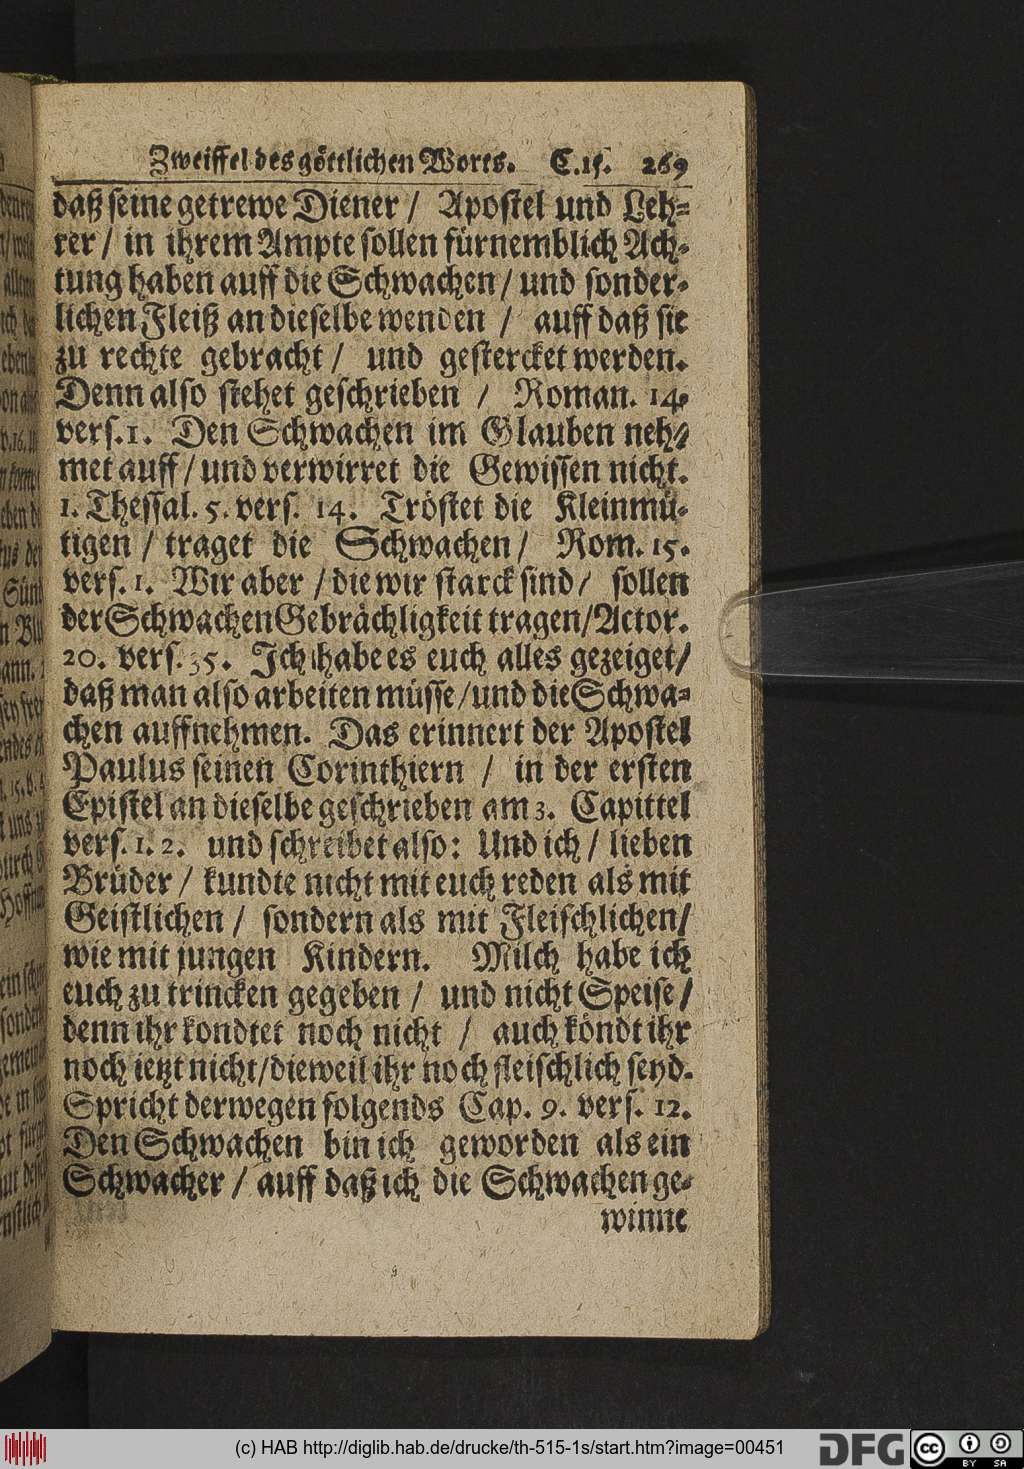 Zweiffel des göttlichen Worts. C. 15. 269
daß seine getrewe Diener / Apostel und Leh-
rer / in ihrem Ampte sollen fürnemblich Ach-
tung haben auff die Schwachen / und sonder-
lichen Fleiß an dieselbe wenden / auff daß sie
zu rechte gebracht / und gestercket werden.
Denn also stehet geschrieben / Roman. 14.
vers. 1. Den Schwachen im Glauben neh-
met auff / und verwirret die Gewissen nicht.
1. Thessal. 5. vers. 14. Tröstet die Kleinmü-
tigen / traget die Schwachen / Rom. 15.
vers. 1. Wir aber / die wir starck sind / sollen
der Schwachen Gebrächligkeit tragen / Actor.
20. vers. 35. Ich habe es euch alles gezeiget /
daß man also arbeiten müsse / und die Schwa-
chen auffnehmen. Das erinnert der Apostel
Paulus seinen Corinthiern / in der ersten
Epistel an dieselbe geschrieben am 3. Capittel
vers. 1. 2. und schreibet also: Und ich / lieben
Brüder / kundte nicht mit euch reden als mit
Geistlichen / sondern als mit Fleischlichen /
wie mit jungen Kindern. Milch habe ich
euch zu trincken gegeben / und nicht Speise /
denn ihr kondtet noch nicht / auch köndt ihr
noch ietzt nicht / dieweil ihr noch fleischlich seyd.
Spricht derwegen folgends Cap. 9. vers. 12.
Den Schwachen bin ich geworden als ein
Schwacher / auff daß ich die Schwachen ge-
winne
(c) HAB http://diglib.hab.de/drucke/th-515-1s/start.htm?image=00451
DFG
cc BY SA